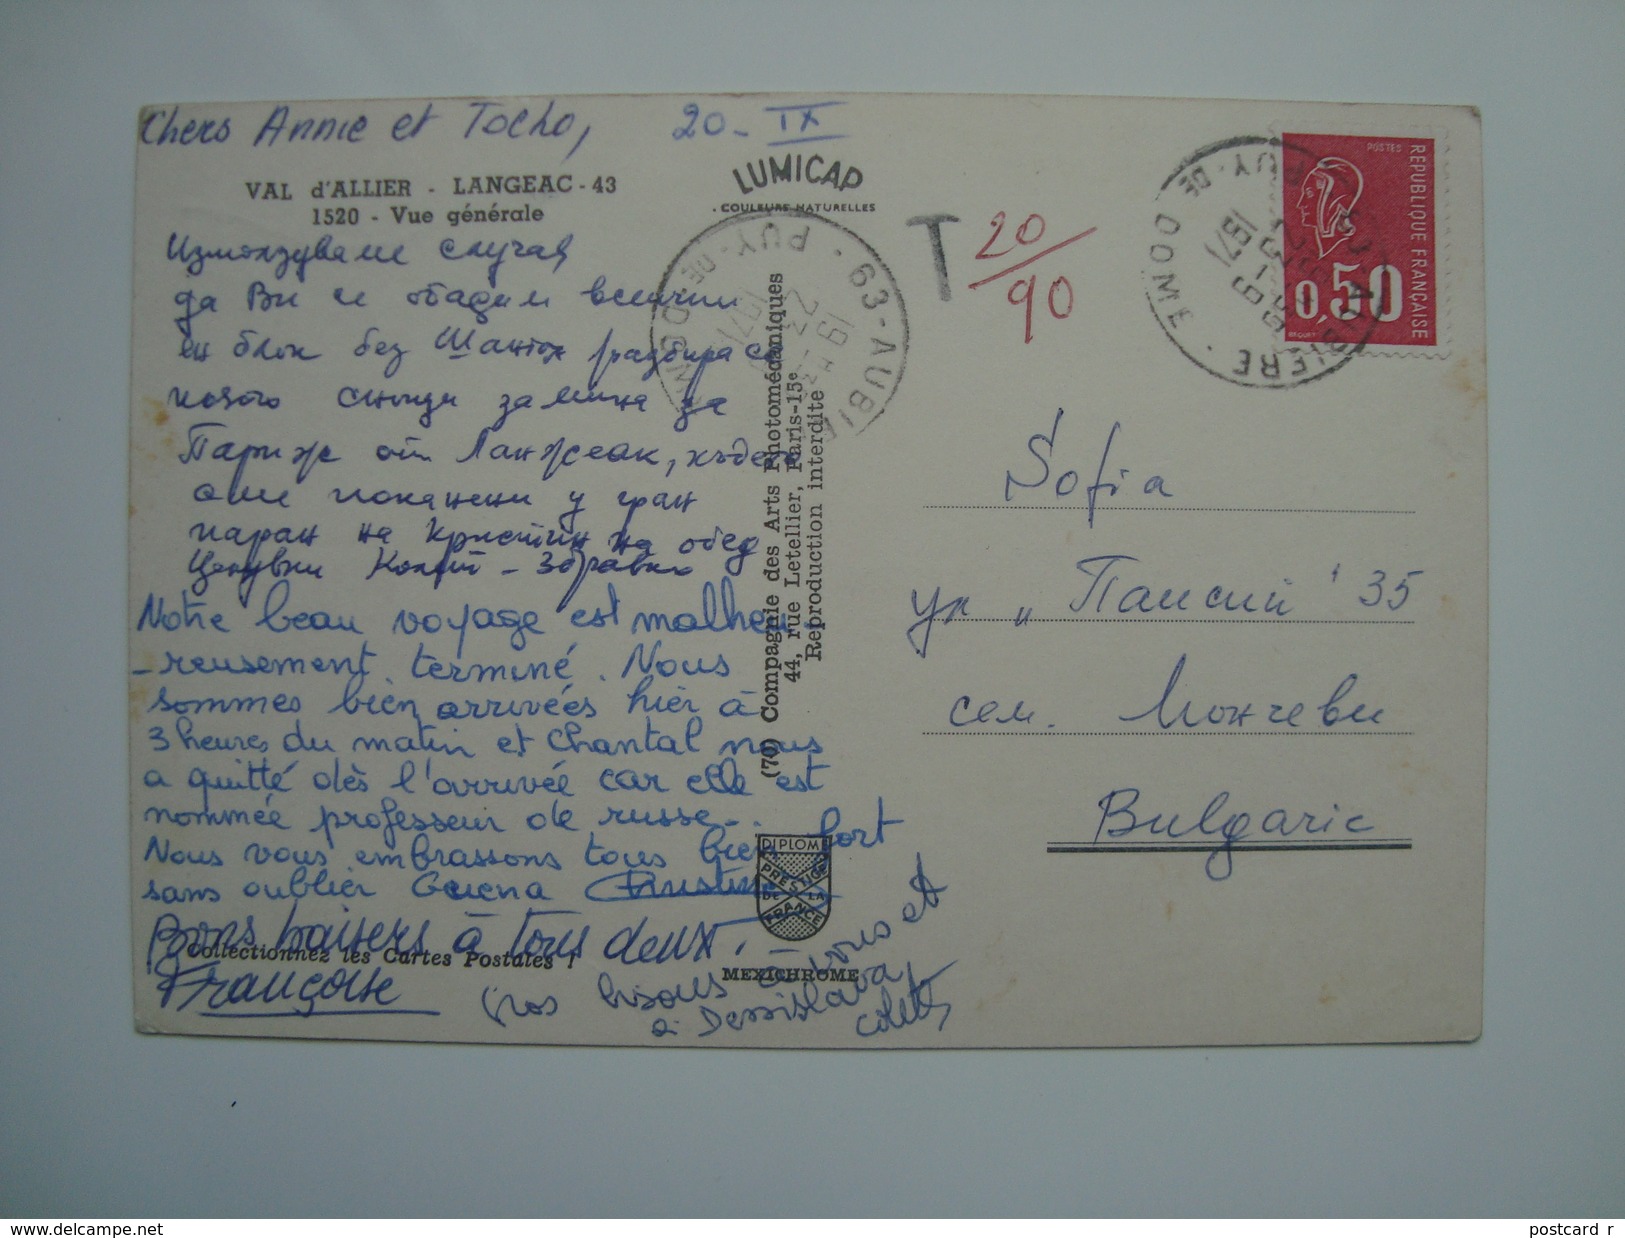 Chers Annie et Tocho, 20 - IX
VAL d'ALLIER - LANGEAC - 43
1520 - Vue générale
LUMICAP
COULEURS NATURELLES
Използуваме случая
да Ви се обадим всички
ен блок без Шантал разбира се
която снощи замина за
Париж от Ланжеак, където
сме поканени у гран
паран на Кристин на обед
Целувки Колет - Здравка
Notre beau voyage est malheu-
-reusement terminé. Nous
sommes bien arrivées hier à
3 heures du matin et Chantal nous
a quitté dès l'arrivée car elle est
nommée professeur de russe...
Nous vous embrassons tous bien fort
sans oublier Christine
Bons baisers à tous deux.
Collectionnez les Cartes Postales !
Françoise
Gros bisous à vous et
à Dessislava
Colette
(70) Compagnie des Arts Photomécaniques
44, rue Letellier, Paris-15e
Reproduction interdite
DIPLOME
PRESTIGE
DE LA
FRANCE
MEXICHROME
63 - AUBIERE
PUY - DE - DOME
T 20/90
POSTES
REPUBLIQUE FRANÇAISE
0,50
BEQUET
AUBIERE
PUY - DE - DOME
Sofia
ул „Паисий" 35
сем. Мончеви
Bulgarie
www.delcampe.net
postcard_r